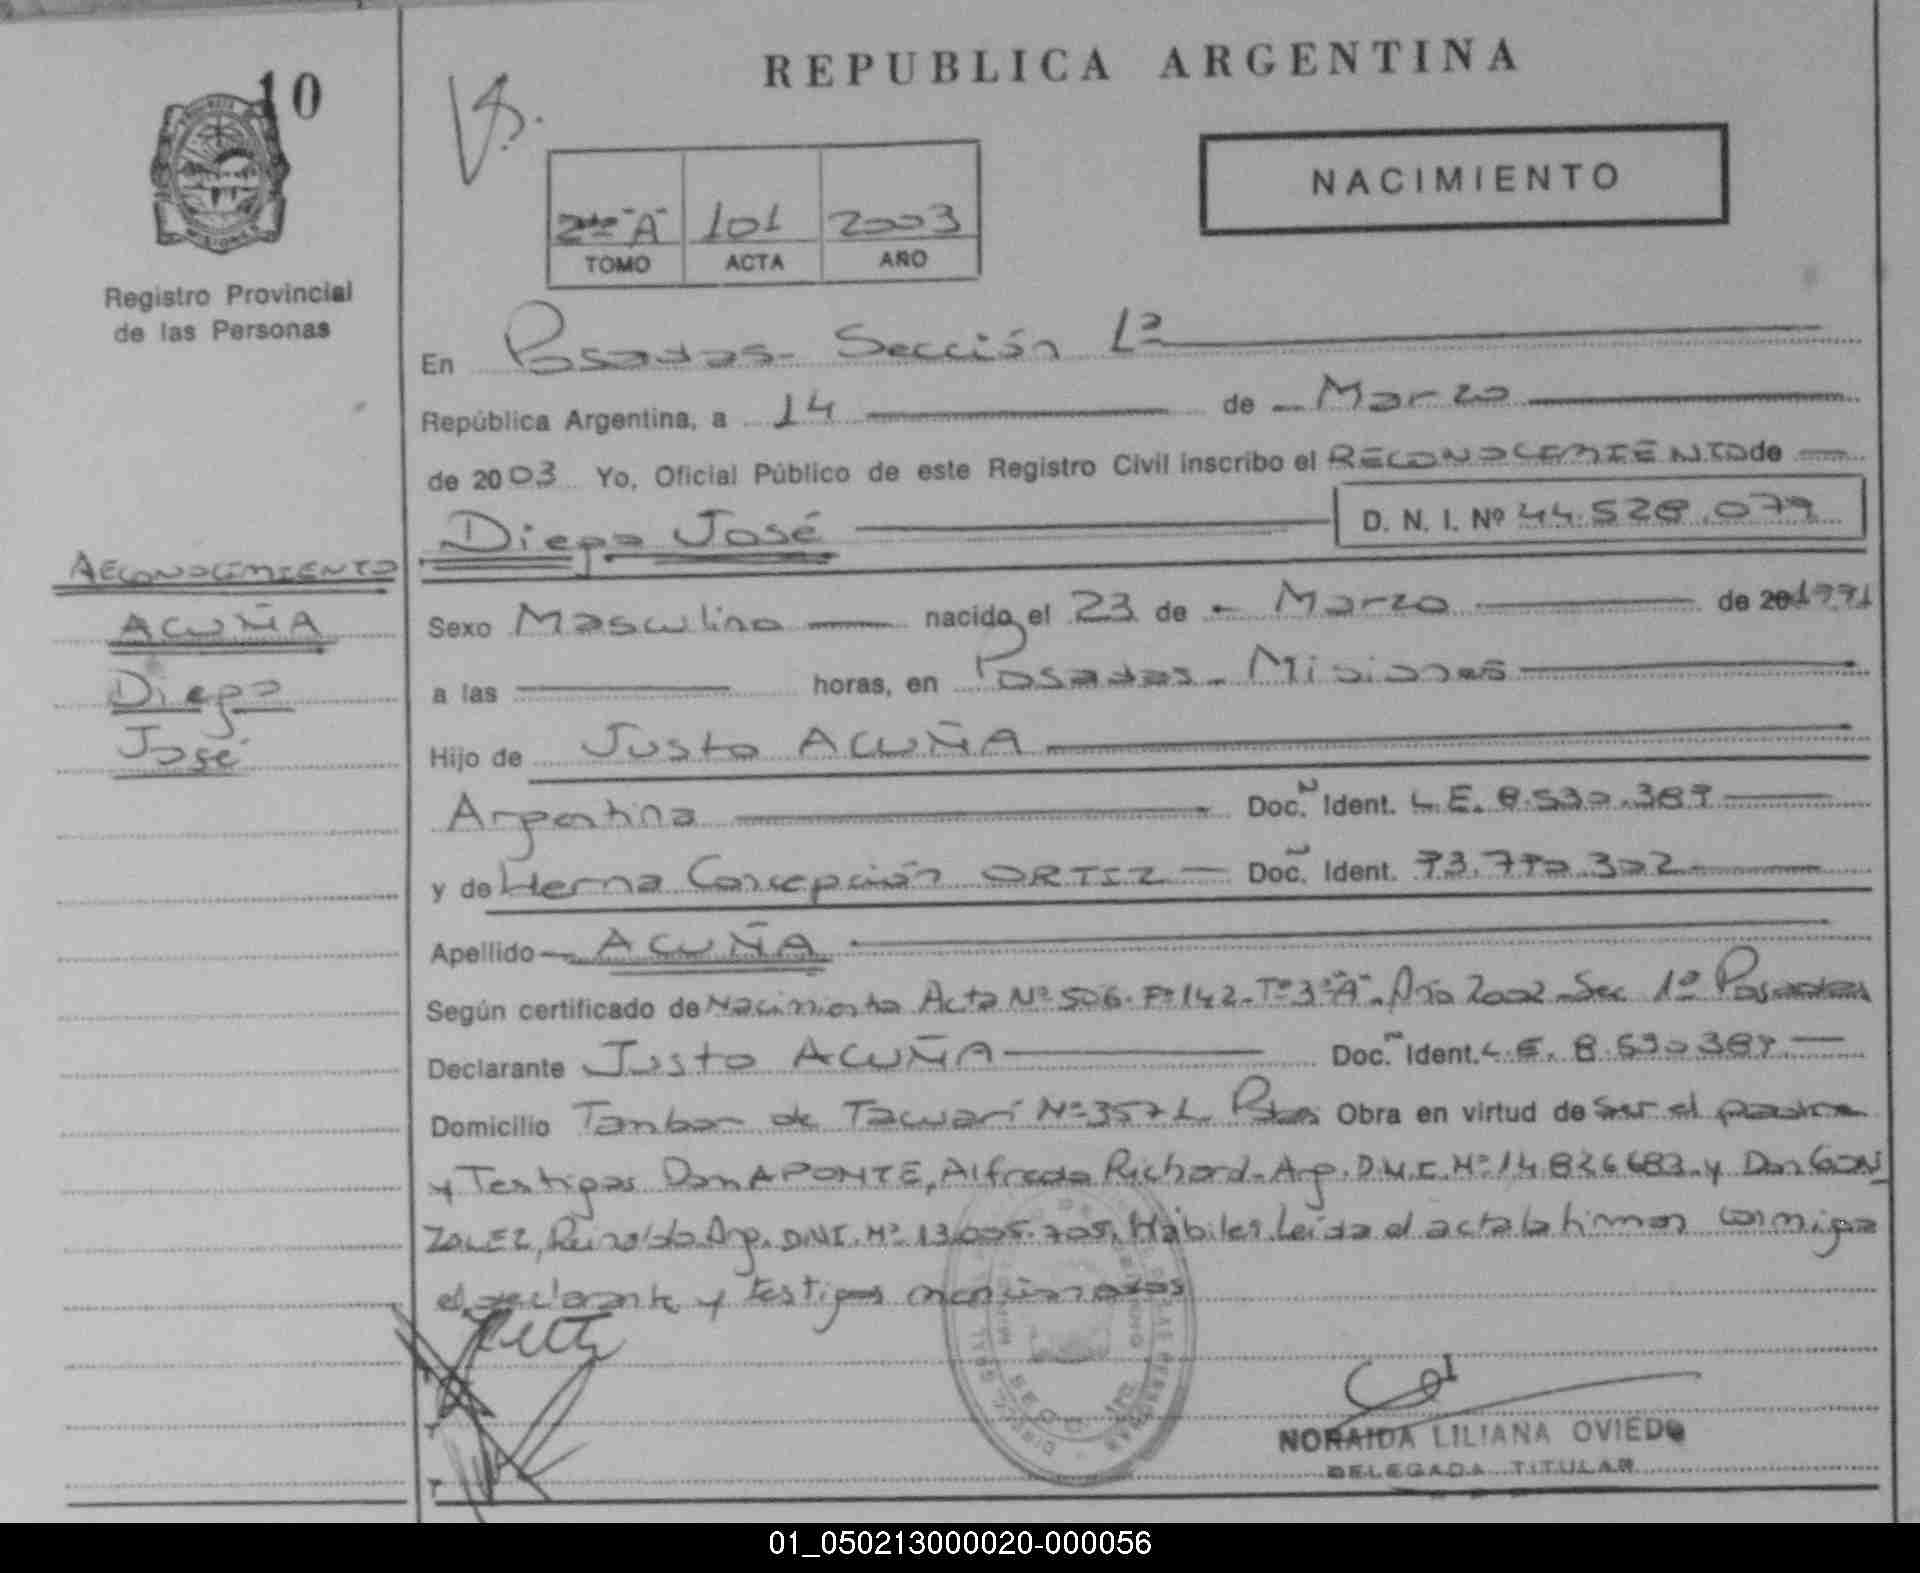 10
MISIONES
Registro Provincial
de las Personas
REPUBLICA ARGENTINA
NACIMIENTO
2do "A" 101 2003
TOMO ACTA AÑO
En Posadas- Sección 1ª
República Argentina, a 14 de Marzo
de 2003 Yo, Oficial Público de este Registro Civil inscribo el RECONOCIMIENTO de
Diego José D. N. I. Nº 44.528.079
RECONOCIMIENTO
ACUÑA
Diego
José
Sexo Masculino nacido el 23 de Marzo de 20 1991
a las horas, en Posadas - Misiones
Hijo de Justo ACUÑA
Argentina Doc. Ident. L.E. 8.530.389
y de Herna Concepción ORTIZ Doc. Ident. 93.770.302
Apellido ACUÑA
Según certificado de Nacimiento Acta Nº 506. Fº 142. Tº 3º "A". Año 2002. Sec 1ª Posadas
Declarante Justo ACUÑA Doc. Ident. L.E. 8.530.389
Domicilio Tambor de Tacuarí Nº 3571. Pdas Obra en virtud de ser el padre
y Testigos Don APONTE, Alfredo Richard. Arg. D.N.I. Nº 14.826.683 y Don GON
ZALEZ, Reinaldo Arg. DNI. Nº 13.005.705, Hábiles. Leída el acta la firman conmigo
el declarante y testigos mencionados
NORAIDA LILIANA OVIEDO
DELEGADA TITULAR
01_050213000020-000056